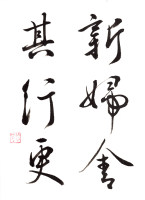 新婦舎
其行更